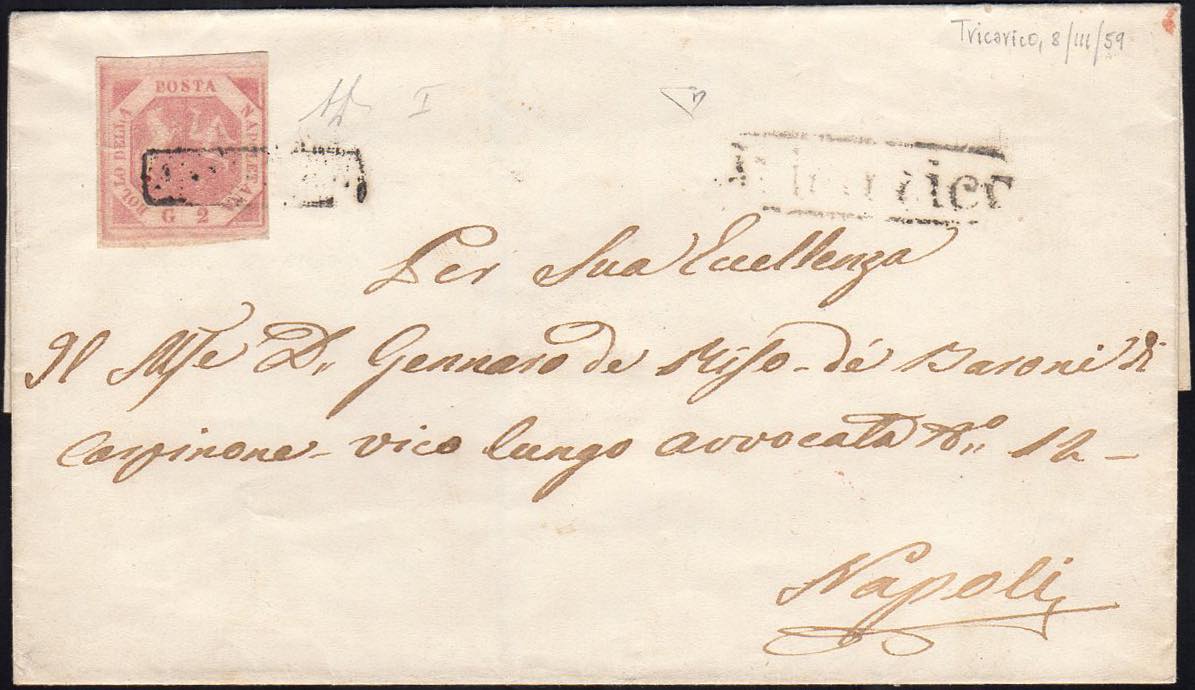 Tricarico, 8/III/59
POSTA
BOLLO DELLA
NAPOLETANA
G 2
I
Per Sua Eccellenza
Il Mse D. Gennaro de Riso de' Baroni di
Carpinone - vico lungo avvocata No. 12 -
Napoli